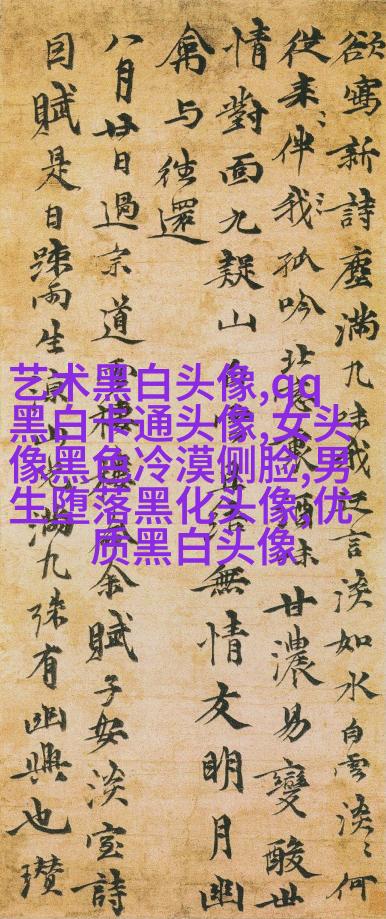 欲寫新詩塵滿
言淡如水白雲淡〻何
從來〻伴我〻孤吟北
甘濃易變酸世
情對面九疑山
無情友明月幽
禽与往還
八月廿日過宗道
賦子安淡室詩
因賦是日踈雨生涼
滿
有幽興也瓚
艺术黑白头像,qq
黑白卡通头像,女头
像黑色冷漠侧脸,男
生堕落黑化头像,优
质黑白头像